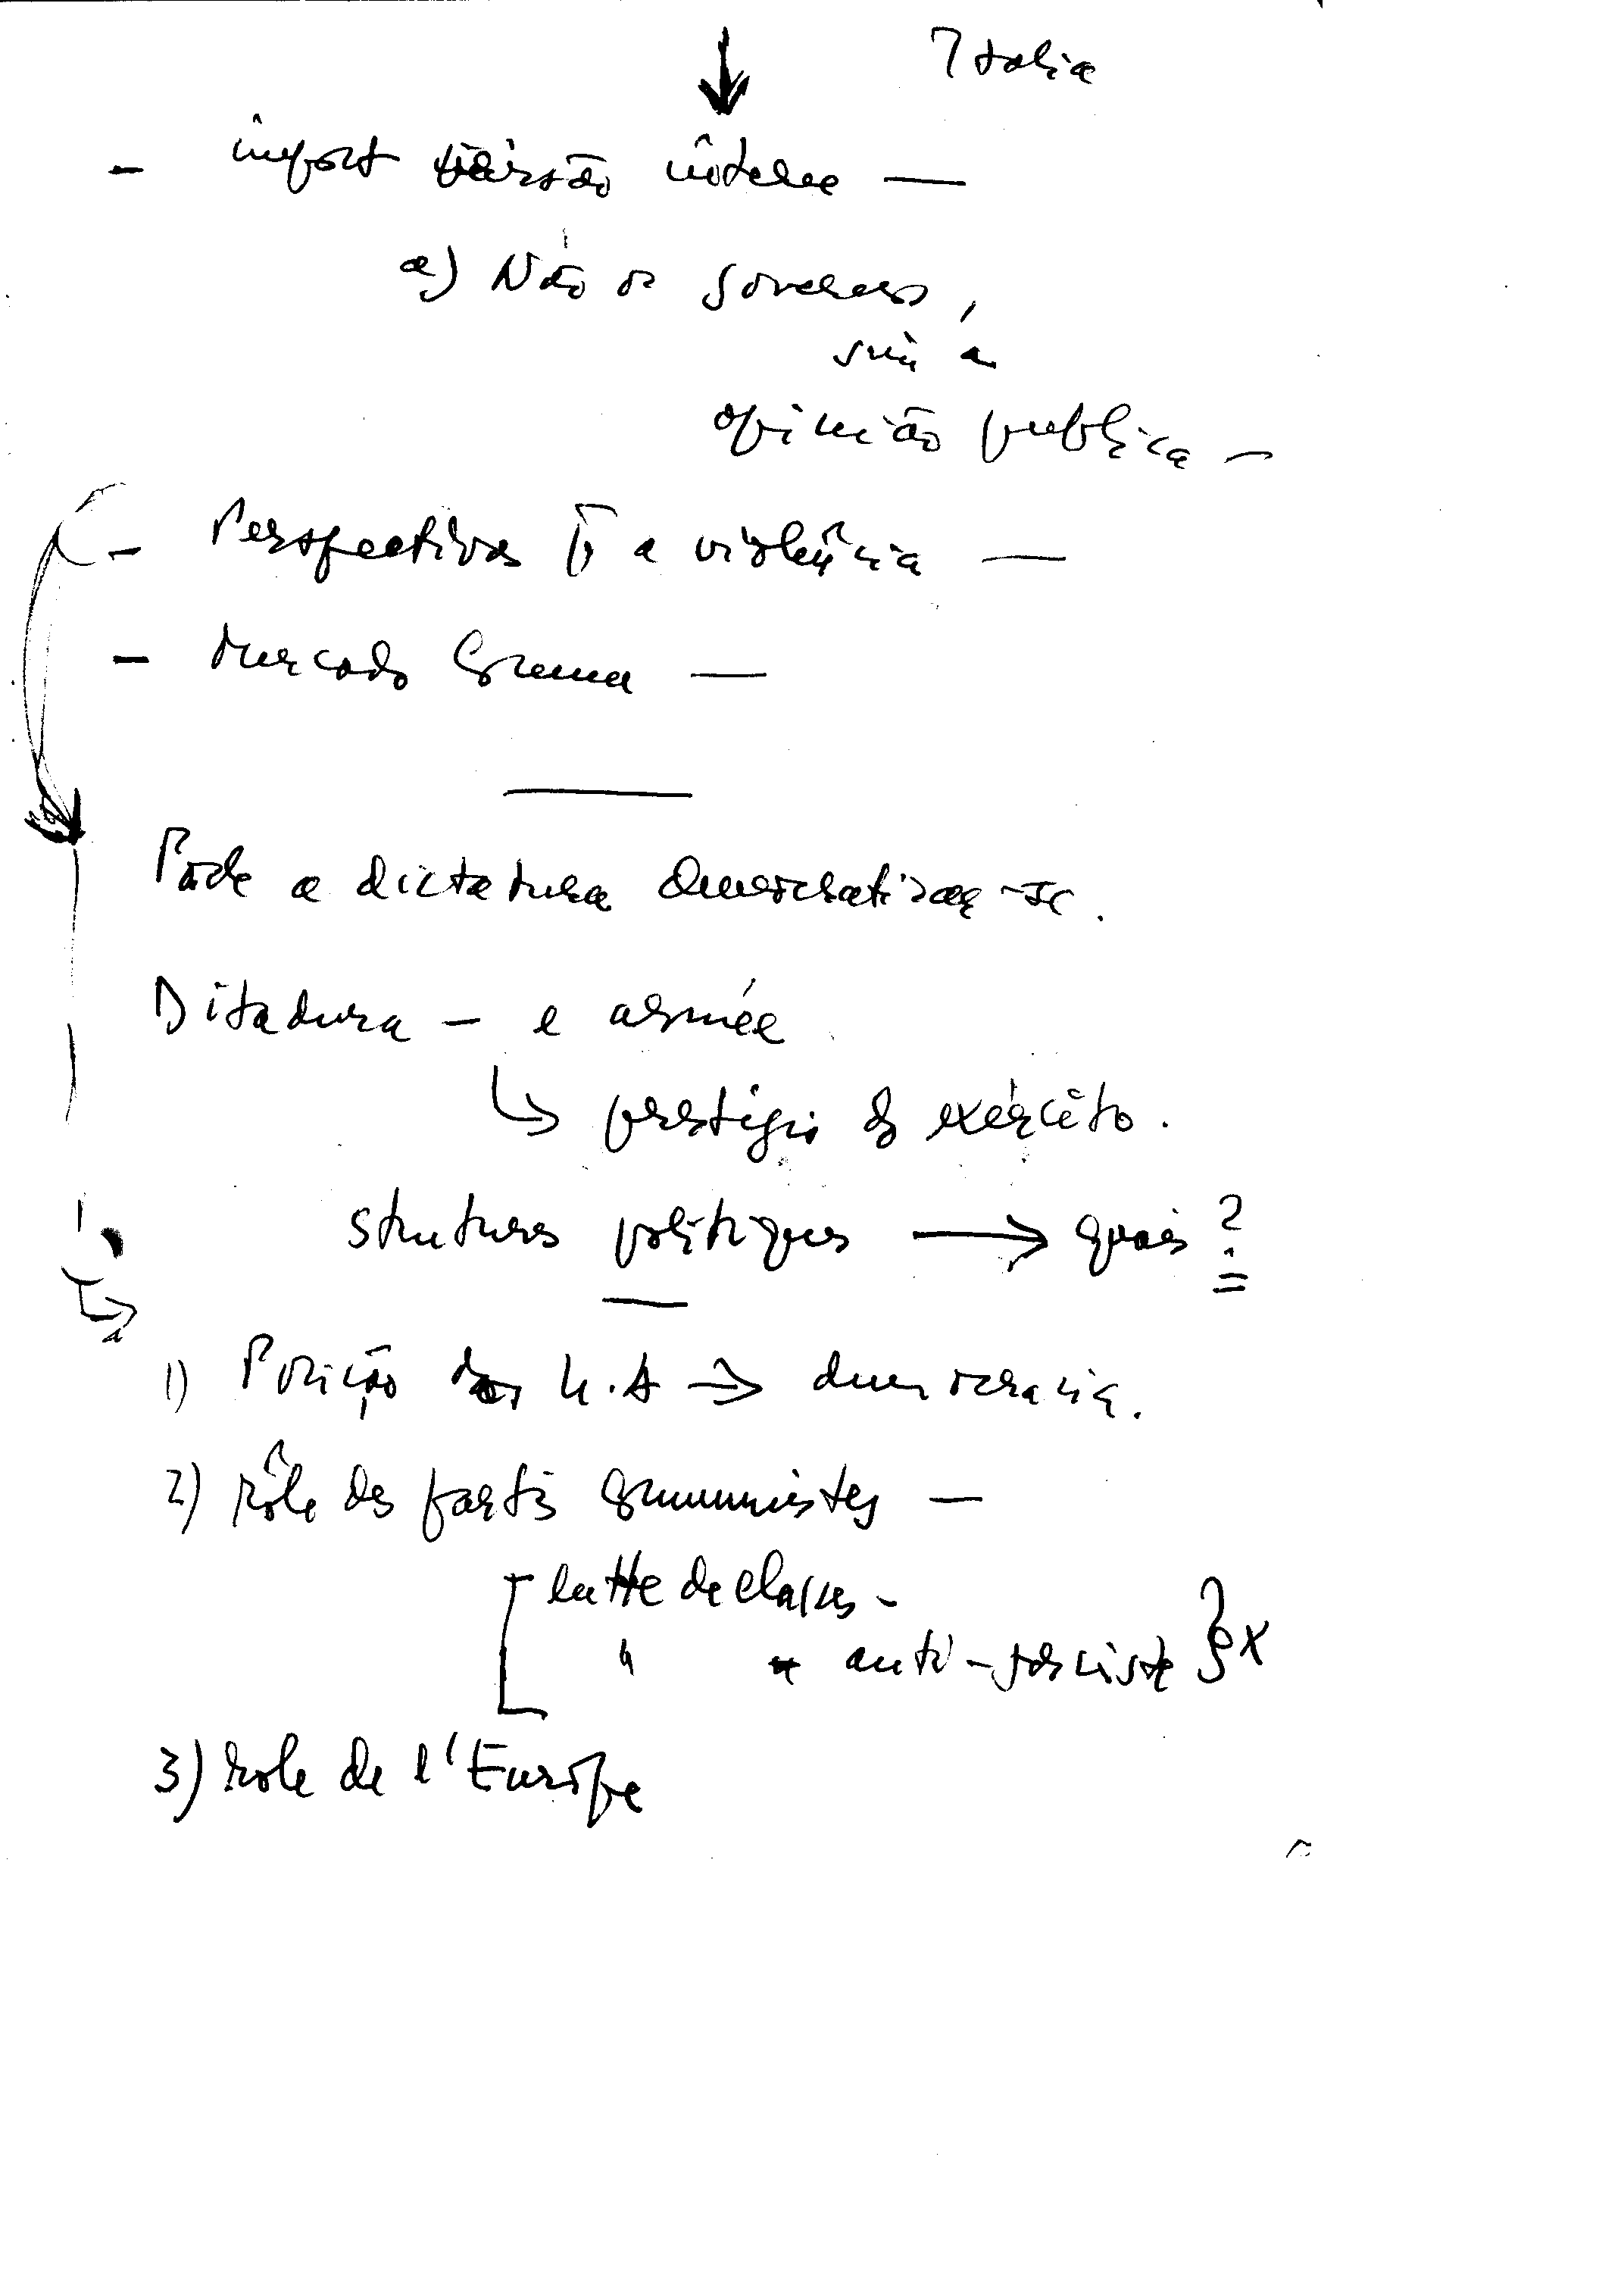 Italia
- import versão interne —
a) Não os governos,
sim a
opinião publica —
- Perspectivas p a violência —
- Mercado Comum —
Pode a dictatura democratizar-se.
Ditadura - e armée
↳ prestígio do exército.
Strutures politiques → quais ?
1) Posição dos U.A → democracia.
2) rôle des partis communistes —
lutte de classes -
" " anti-fasciste } X
3) role de l'Europe